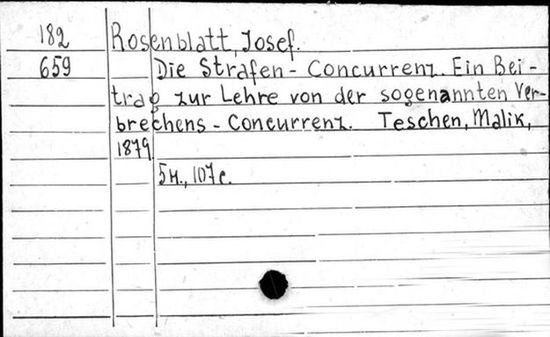 182 Rosenblatt, Josef.
659 Die Strafen-Concurrenz. Ein Bei-
trag zur Lehre von der sogenannten Ver-
brechens-Concurrenz. Teschen, Malik,
1879.
5н., 107с.